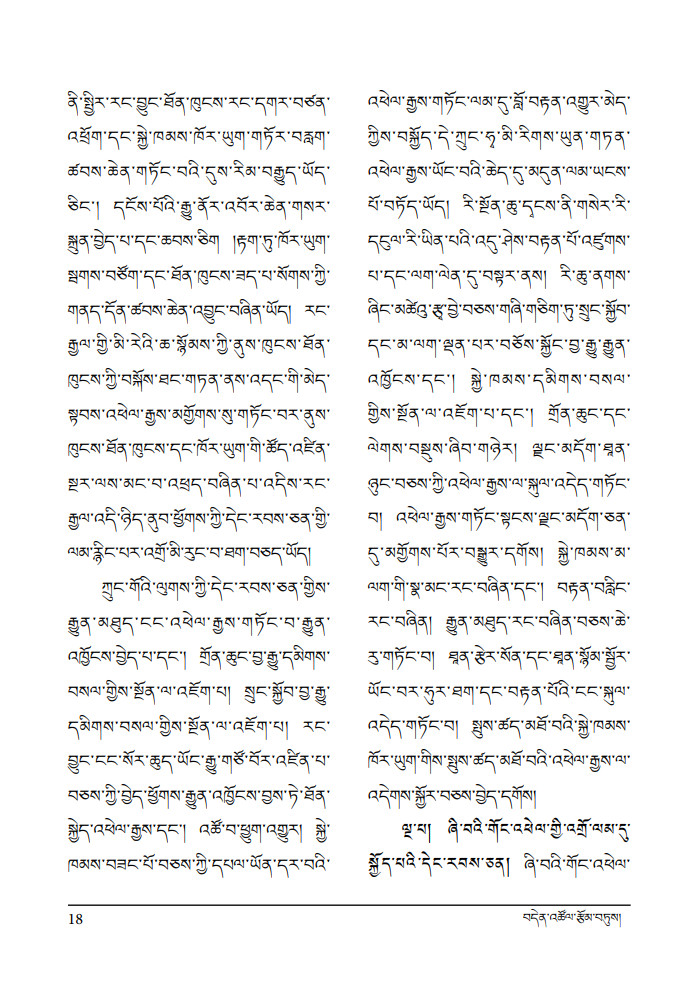 ནི་སྤྱིར་རང་བྱུང་ཐོན་ཁུངས་རང་དགར་བཙན་
འཕྲོག་དང་སྐྱེ་ཁམས་ཁོར་ཡུག་གཏོར་བརླག་
ཚབས་ཆེན་གཏོང་བའི་དུས་རིམ་བརྒྱུད་ཡོད་
ཅིང་། དངོས་པོའི་རྒྱུ་ནོར་འབོར་ཆེན་གསར་
སྐྲུན་བྱེད་པ་དང་ཆབས་ཅིག །རྟག་ཏུ་ཁོར་ཡུག་
སྦགས་བཙོག་དང་ཐོན་ཁུངས་ཟད་པ་སོགས་ཀྱི་
གནད་དོན་ཚབས་ཆེན་འབྱུང་བཞིན་ཡོད། རང་
རྒྱལ་གྱི་མི་རེའི་ཆ་སྙོམས་ཀྱི་ནུས་ཁུངས་ཐོན་
ཁུངས་ཀྱི་བསྐོས་ཐང་གཏན་ནས་འདང་གི་མེད་
སྟབས་འཕེལ་རྒྱས་མགྱོགས་སུ་གཏོང་བར་ནུས་
ཁུངས་ཐོན་ཁུངས་དང་ཁོར་ཡུག་གི་ཚོད་འཛིན་
སྔར་ལས་མང་བ་འཕྲད་བཞིན་པ་འདིས་རང་
རྒྱལ་འདི་ཉིད་ནུབ་ཕྱོགས་ཀྱི་དེང་རབས་ཅན་གྱི་
ལམ་རྙིང་པར་འགྲོ་མི་རུང་བ་ཐག་བཅད་ཡོད།
ཀྲུང་གོའི་ལུགས་ཀྱི་དེང་རབས་ཅན་གྱིས་
རྒྱུན་མཐུད་ངང་འཕེལ་རྒྱས་གཏོང་བ་རྒྱུན་
འཁྱོངས་བྱེད་པ་དང་། གྲོན་ཆུང་བྱ་རྒྱུ་དམིགས་
བསལ་གྱིས་སྔོན་ལ་འཇོག་པ། སྲུང་སྐྱོབ་བྱ་རྒྱུ་
དམིགས་བསལ་གྱིས་སྔོན་ལ་འཇོག་པ། རང་
བྱུང་ངང་སོར་ཆུད་ཡོང་རྒྱུ་གཙོ་བོར་འཛིན་པ་
བཅས་ཀྱི་བྱེད་ཕྱོགས་རྒྱུན་འཁྱོངས་བྱས་ཏེ་ཐོན་
སྐྱེད་འཕེལ་རྒྱས་དང་། འཚོ་བ་ཕྱུག་འགྱུར། སྐྱེ་
ཁམས་བཟང་པོ་བཅས་ཀྱི་དཔལ་ཡོན་དར་བའི་
འཕེལ་རྒྱས་གཏོང་ལམ་དུ་བློ་བརྟན་འགྱུར་མེད་
ཀྱིས་བསྐྱོད་དེ་ཀྲུང་ཧྭ་མི་རིགས་ཡུན་གཏན་
འཕེལ་རྒྱས་ཡོང་བའི་ཆེད་དུ་མདུན་ལམ་ཡངས་
པོ་བཏོད་ཡོད། རི་སྔོན་ཆུ་དྭངས་ནི་གསེར་རི་
དངུལ་རི་ཡིན་པའི་འདུ་ཤེས་བརྟན་པོ་འཛུགས་
པ་དང་ལག་ལེན་དུ་བསྟར་ནས། རི་ཆུ་ནགས་
ཞིང་མཚེའུ་རྩྭ་བྱེ་བཅས་གཞི་གཅིག་ཏུ་སྲུང་སྐྱོབ་
དང་མ་ལག་ལྡན་པར་བཅོས་སྐྱོང་བྱ་རྒྱུ་རྒྱུན་
འཁྱོངས་དང་། སྐྱེ་ཁམས་དམིགས་བསལ་
གྱིས་སྔོན་ལ་འཇོག་པ་དང་། གྲོན་ཆུང་དང་
ལེགས་བསྡུས་ཞིབ་གཉེར། ལྗང་མདོག་ཐན་
ཉུང་བཅས་ཀྱི་འཕེལ་རྒྱས་ལ་སྐུལ་འདེད་གཏོང་
བ། འཕེལ་རྒྱས་གཏོང་སྟངས་ལྗང་མདོག་ཅན་
དུ་མགྱོགས་པོར་བསྒྱུར་དགོས། སྐྱེ་ཁམས་མ་
ལག་གི་སྣ་མང་རང་བཞིན་དང་། བརྟན་བརླིང་
རང་བཞིན། རྒྱུན་མཐུད་རང་བཞིན་བཅས་ཆེ་
རུ་གཏོང་བ། ཐན་རྩེར་སོན་དང་ཐན་སྙོམ་སྦྱོར་
ཡོང་བར་ཧུར་ཐག་དང་བརྟན་པོའི་ངང་སྐུལ་
འདེད་གཏོང་བ། སྤུས་ཚད་མཐོ་བའི་སྐྱེ་ཁམས་
ཁོར་ཡུག་གིས་སྤུས་ཚད་མཐོ་བའི་འཕེལ་རྒྱས་ལ་
འདེགས་སྐྱོར་བཅས་བྱེད་དགོས།
ལྔ་པ། ཞི་བའི་གོང་འཕེལ་གྱི་འགྲོ་ལམ་དུ་
སྐྱོད་པའི་དེང་རབས་ཅན། ཞི་བའི་གོང་འཕེལ་
18
བདེན་འཚོལ་རྩོམ་བཏུས།